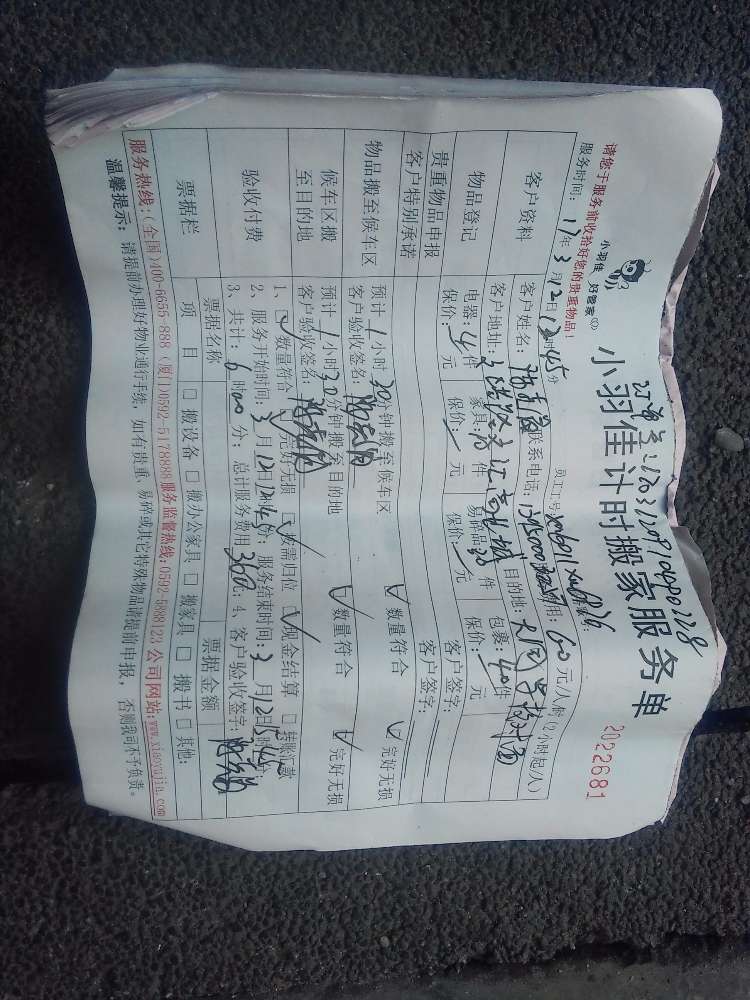 小羽佳计时搬家服务单
2022681
小羽佳 好管家
请您于服务前收拾好您的贵重物品！
服务时间：17年3月12日12时45分 员工工号： 费用：60元/人/时（2小时起/人）
客户资料
客户姓名： 联系电话：
客户地址： 目的地：
物品登记
电器：4件 家具： 件 易碎品： 件 包裹：40件
保价：/元 保价：/元 保价：/元 保价： 元
贵重物品申报 客户签字：
客户特别承诺 客户签字：
物品搬至候车区
预计1小时30分钟搬至候车区
客户验收签名： ☑数量符合 ☑完好无损
候车区搬至目的地
预计1小时30分钟搬至目的地
客户验收签名： ☑数量符合 ☑完好无损
验收付费
1、☑数量符合 ☑完好无损 ☑按需归位 ☑现金结算 □转账汇款
2、服务开始时间：3月12日12时45分；服务结束时间：3月12日 时 分；
3、共计：6时00分；总计服务费用360元；4、客户验收签字：
票据栏
票据名称 票据金额
项目 □搬设备 □搬办公家具 □搬家具 □搬书 □其他：
服务热线：（全国）400-6655-888（厦门）0592-5178888 服务监督热线：0592-5888123 公司网站：www.xiaoyujia.com
温馨提示：请提前办理好物业通行手续，如有贵重、易碎或其它特殊物品请提前申报，否则我司不予负责。